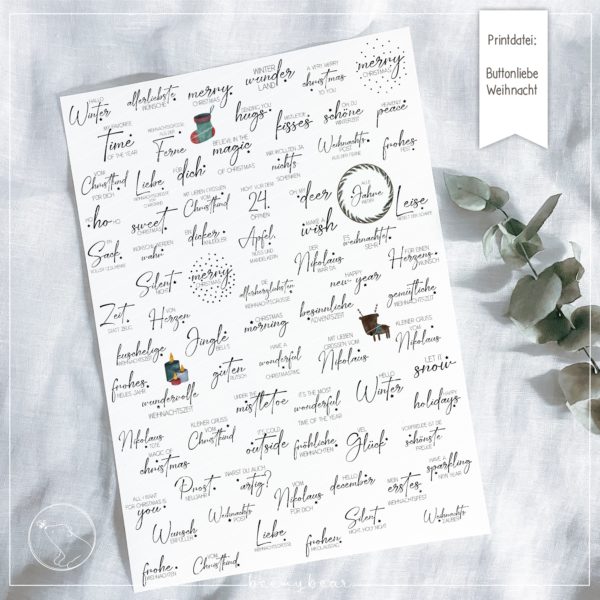 Printdatei:
Buttonliebe
Weihnacht
HALLO
Winter
allerliebste
WÜNSCHE
merry
CHRISTMAS
WINTER
wunder
LAND
A VERY MERRY
christmas
TO YOU
merry
CHRISTMAS
MY FAVORITE
Time
OF THE YEAR
WEIHNACHTSGRÜSSE
AUS DER
Ferne
BELIEVE IN THE
magic
OF CHRISTMAS
SENDING YOU
hugs
MISTLETOE
kisses
OH DU
schöne
WINTERZEIT
HEAVENLY
peace
VOM
Christkind
FÜR DICH
Liebe
FÜR
dich
WIR WOLLTEN JA
nichts
SCHENKEN
Weihnachts
POST
AUS DER FERNE
frohes
FEST
HO HO
ho
sweet
CHRISTMAS
MIT LIEBEN GRÜSSEN
VOM
Christkind
NICHT VOR DEM
24.
ÖFFNEN
OH, MY
deer
ALLE
Jahre
WIEDER
Leise
RIESELT DER SCHNEE
EIN
Sack
VOLLER GESCHENKE
WÜNSCHE WERDEN
wahr
EIN
dicker
KNUDDLER
Apfel
NUSS UND
MANDELKERN
MAKE A
wish
ES
weihnachtet
SEHR
Silent
NIGHT
merry
CHRISTMAS
DIE
allerherzlichsten
WEIHNACHTSGRÜSSE
DER
Nikolaus
WAR DA
FÜR EINEN
Herzens
WUNSCH
Zeit
STATT ZEUG
VON
Herzen
CHRISTMAS
morning
HAPPY
new year
besinnliche
ADVENTSZEIT
gemütliche
WEIHNACHTSZEIT
kuschelige
WEIHNACHTSZEIT
Jingle
BELLS
HAVE A
wonderful
CHRISTMASTIME
MIT LIEBEN
GRÜSSEN VOM
Nikolaus
KLEINER GRUSS
VOM
Nikolaus
frohes
NEUES JAHR
guten
RUTSCH
wundervolle
WEIHNACHTSZEIT
UNDER THE
mistletoe
IT'S THE MOST
wonderful
TIME OF THE YEAR
HELLO
Winter
LET IT
snow
Nikolaus
TÜTE
KLEINER GRUSS
VOM
Christkind
IT'S COLD
outside
fröhliche
WEIHNACHTEN
VIEL
Glück
HAPPY
holidays
MAGIC OF
christmas
VORFREUDE IST DIE
schönste
FREUDE
ALL I WANT
FOR CHRISTMAS IS
you
Prost
NEUJAHR
WARST DU AUCH
artig?
VOM
Nikolaus
FÜR DICH
HELLO
december
MEIN
erstes
WEIHNACHTSFEST
HAVE A
sparkling
NEW YEAR
Wunsch
ERFÜLLER
Weihnachts
POST
Liebe
WEIHNACHTSGRÜSSE
frohen
NIKOLAUSTAG
Silent
NIGHT HOLY NIGHT
Weihnachts
ZAUBER
frohe
WEIHNACHTEN
VOM
Christkind
beemybear